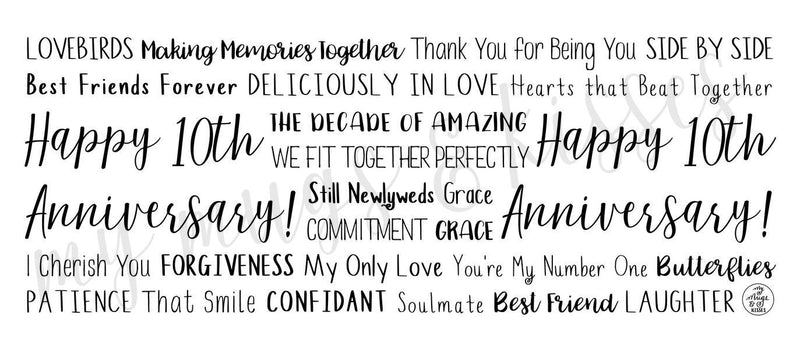 LOVEBIRDS Making Memories Together Thank You for Being You SIDE BY SIDE
Best Friends Forever DELICIOUSLY IN LOVE Hearts that Beat Together
Happy 10th THE DECADE OF AMAZING Happy 10th
WE FIT TOGETHER PERFECTLY
Anniversary! Still Newlyweds Grace Anniversary!
COMMITMENT GRACE
I Cherish You FORGIVENESS My Only Love You're My Number One Butterflies
PATIENCE That Smile CONFIDANT Soulmate Best Friend LAUGHTER
my mugs & kisses
My Mugs & KISSES